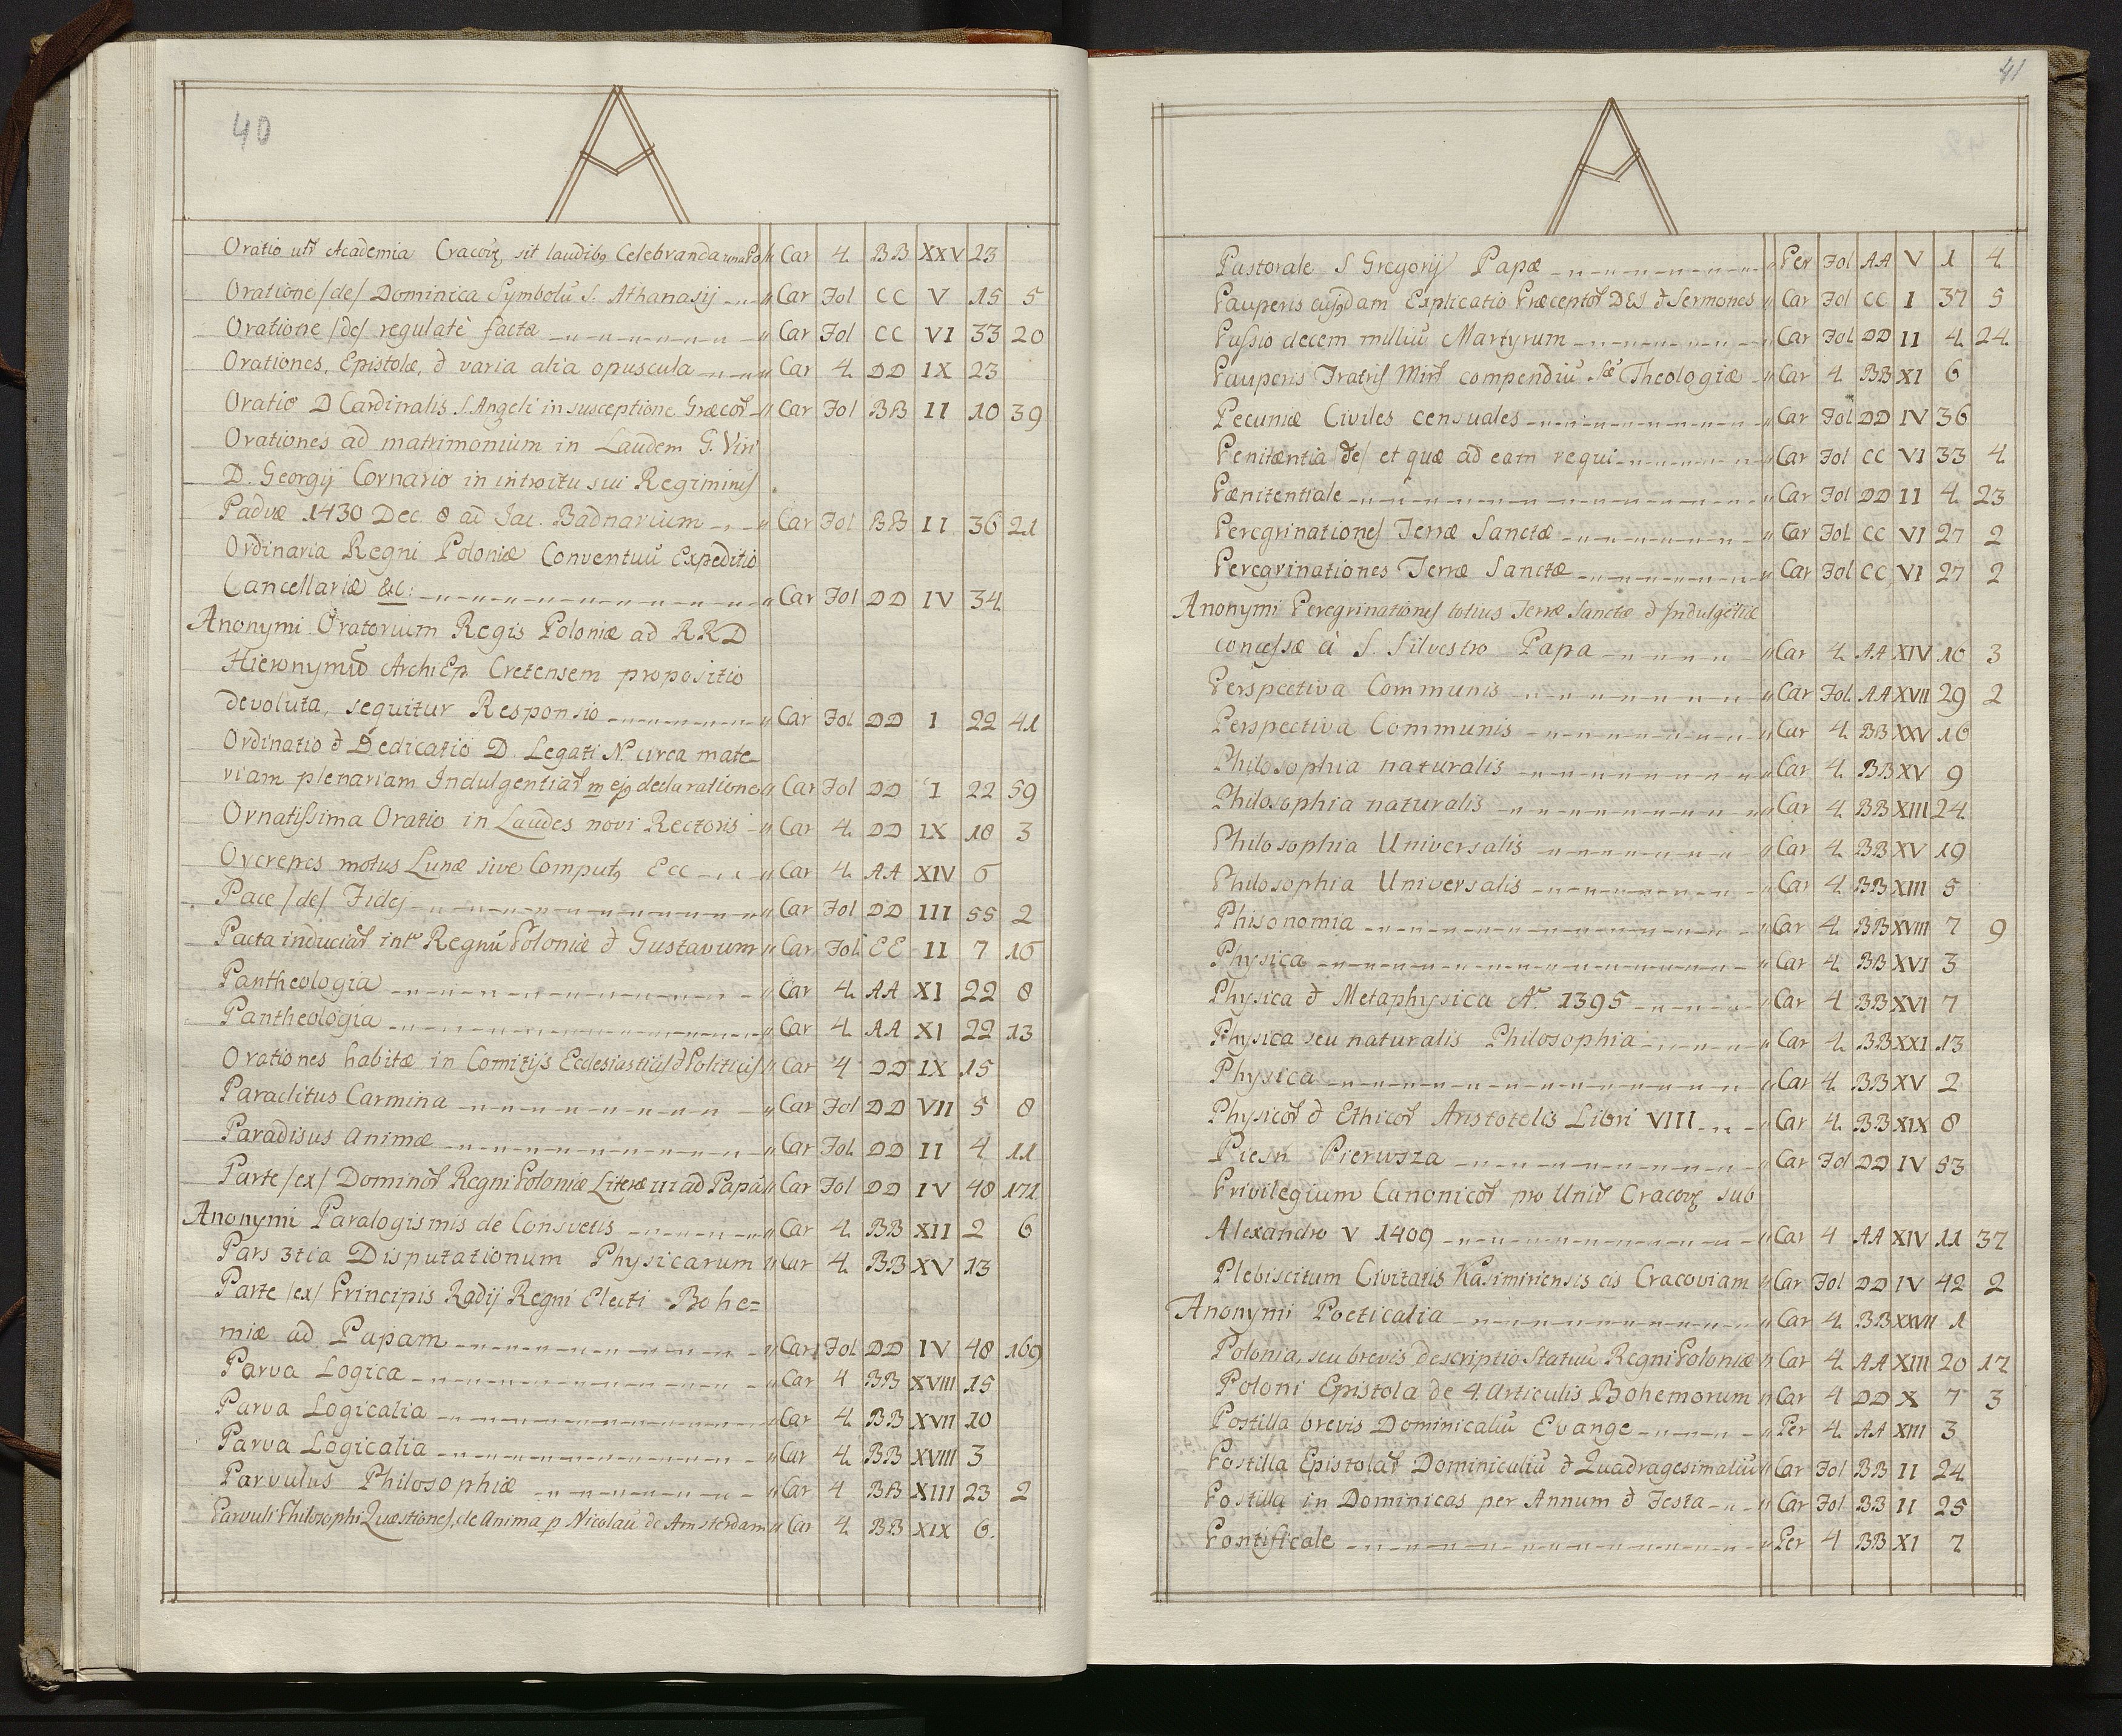 40
A
Oratio utr Academia Cracov sit laudibq Celebranda una Pol " Car 4 BB XXV 23
Oratione /de/ Dominica Symbolū S. Athanasij " Car Fol CC V 15 5
Oratione /de/ regulatè facta " Car Fol CC VI 33 20
Orationes, Epistolæ, & varia alia opuscula " Car 4 DD IX 23
Oratio D Cardinalis S Angeli in susceptione Græcor " Car Fol BB II 10 39
Orationes ad matrimonium in Laudem G. Viri
D. Georgij Cornario in introitu sui Regiminis
Paduæ 1430 Dec. 8 ad Jac. Badnarium " Car Fol BB II 36 21
Ordinaria Regni Poloniæ Conventuū Expeditio
Cancellariæ &c: " Car Fol DD IV 34
Anonymi Oratorum Regis Poloniæ ad RRD
Hieronymū ArchiEp Cretensem propositio
devoluta, sequitur Responsio " Car Fol DD I 22 41
Ordinatio & Dedicatio D. Legati N. circa mate
riam plenariam Indulgentiar m ejq declaratione " Car Fol DD I 22 59
Ornatissima Oratio in Laudes novi Rectoris " Car 4 DD IX 18 3
Overepes motus Lunæ sive Computq Ecc " Car 4 AA XIV 6
Pace /de/ Fidej " Car Fol DD III 55 2
Pacta induciar inte Regnū Poloniæ & Gustavum " Car Fol EE II 7 16
Pantheologia " Car 4 AA XI 22 8
Pantheologia " Car 4 AA XI 22 13
Orationes habitæ in Comitijs Ecclesiasticis & Politicis " Car 4 DD IX 15
Paraclitus Carmina " Car Fol DD VII 5 8
Paradisus Animæ " Car Fol DD II 4 11
Parte /ex/ Dominor Regni Poloniæ Literæ III ad Papā " Car Fol DD IV 48 171
Anonymi Paralogismis de Consvetis " Car 4 BB XII 2 6
Pars 3tia Disputationum Physicarum " Car 4 BB XV 13
Parte /ex/ Principis Radij Regni Electi Bohe=
miæ ad Papam " Car Fol DD IV 48 169
Parva Logica " Car 4 BB XVIII 15
Parva Logicalia " Car 4 BB XVII 10
Parva Logicalia " Car 4 BB XVIII 3
Parvulus Philosophiæ " Car 4 BB XIII 23 2
Parvuli Philosophi Quæstiones, de Anima p Nicolaū de Amsterdam " Car 4 BB XIX 6.
41
A
Pastorale S Gregorij Papæ " Per Fol AA V 1 4
Pauperis cujqdam Explicatio Præceptor DEI & Sermones " Car Fol CC I 37 5
Passio decem milliū Martyrum " Car Fol DD II 4 24
Pauperis Fratris Minr compendiū Sæ Theologiæ " Car 4 BB XI 6
Pecuniæ Civiles censuales " Car Fol DD IV 36
Penitæntia /de/ et quæ ad eam requi " Car Fol CC VI 33 4
Pænitentiale " Car Fol DD II 4 23
Peregrinationes Terræ Sanctæ " Car Fol CC VI 27 2
Peregrinationes Terræ Sanctæ " Car Fol CC VI 27 2
Anonymi Peregrinationes totius Terræ Sanctæ & Indulgetiæ
concessæ à S. Silvestro Papa " Car 4 AA XIV 16 3
Perspectiva Communis " Car Fol AA XVII 29 2
Perspectiva Communis " Car 4 BB XXV 16
Philosophia naturalis " Car 4 BB XV 9
Philosophia naturalis " Car 4 BB XIII 24
Philosophia Universalis " Car 4 BB XV 19
Philosophia Universalis " Car 4 BB XIII 5
Phisonomia " Car 4 BB XVIII 7 9
Physica " Car 4 BB XVI 3
Physica & Metaphysica Ao 1395 " Car 4 BB XVI 7
Physica seu naturalis Philosophia " Car 4 BB XXI 13
Physica " Car 4 BB XV 2
Physicor & Ethicor Aristotelis Libri VIII " Car 4 BB XIX 8
Piesn Pierwsza " Car Fol DD IV 53
Privilegium Canonicor pro Unir Cracov sub
Alexandro V 1409 " Car 4 AA XIV 11 37
Plebiscitum Civitatis Kasimiriensis cis Cracoviam " Car Fol DD IV 42 2
Anonymi Poeticalia " Car 4 BB XXVII 1
Polonia, seu brevis descriptio Statuū Regni Poloniæ " Car 4 AA XIII 20 17
Poloni Epistola de 4. Articulis Bohemorum " Car 4 DD X 7 3
Postilla brevis Dominicaliū Evange " Per 4 AA XIII 3
Postilla Epistolar Dominicaliū & Quadragesimaliū " Car Fol BB II 24
Postilla in Dominicas per Annum & Festa " Car Fol BB II 25
Pontificale " Per 4 BB XI 7